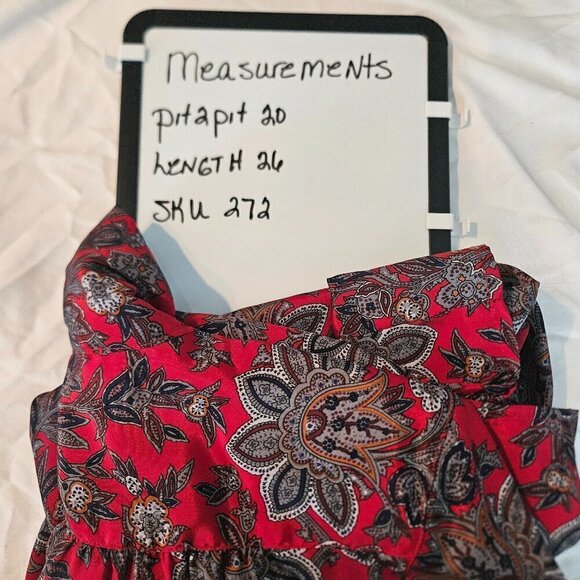 Measurements
pit2pit 20
LENGTH 26
SKU 272